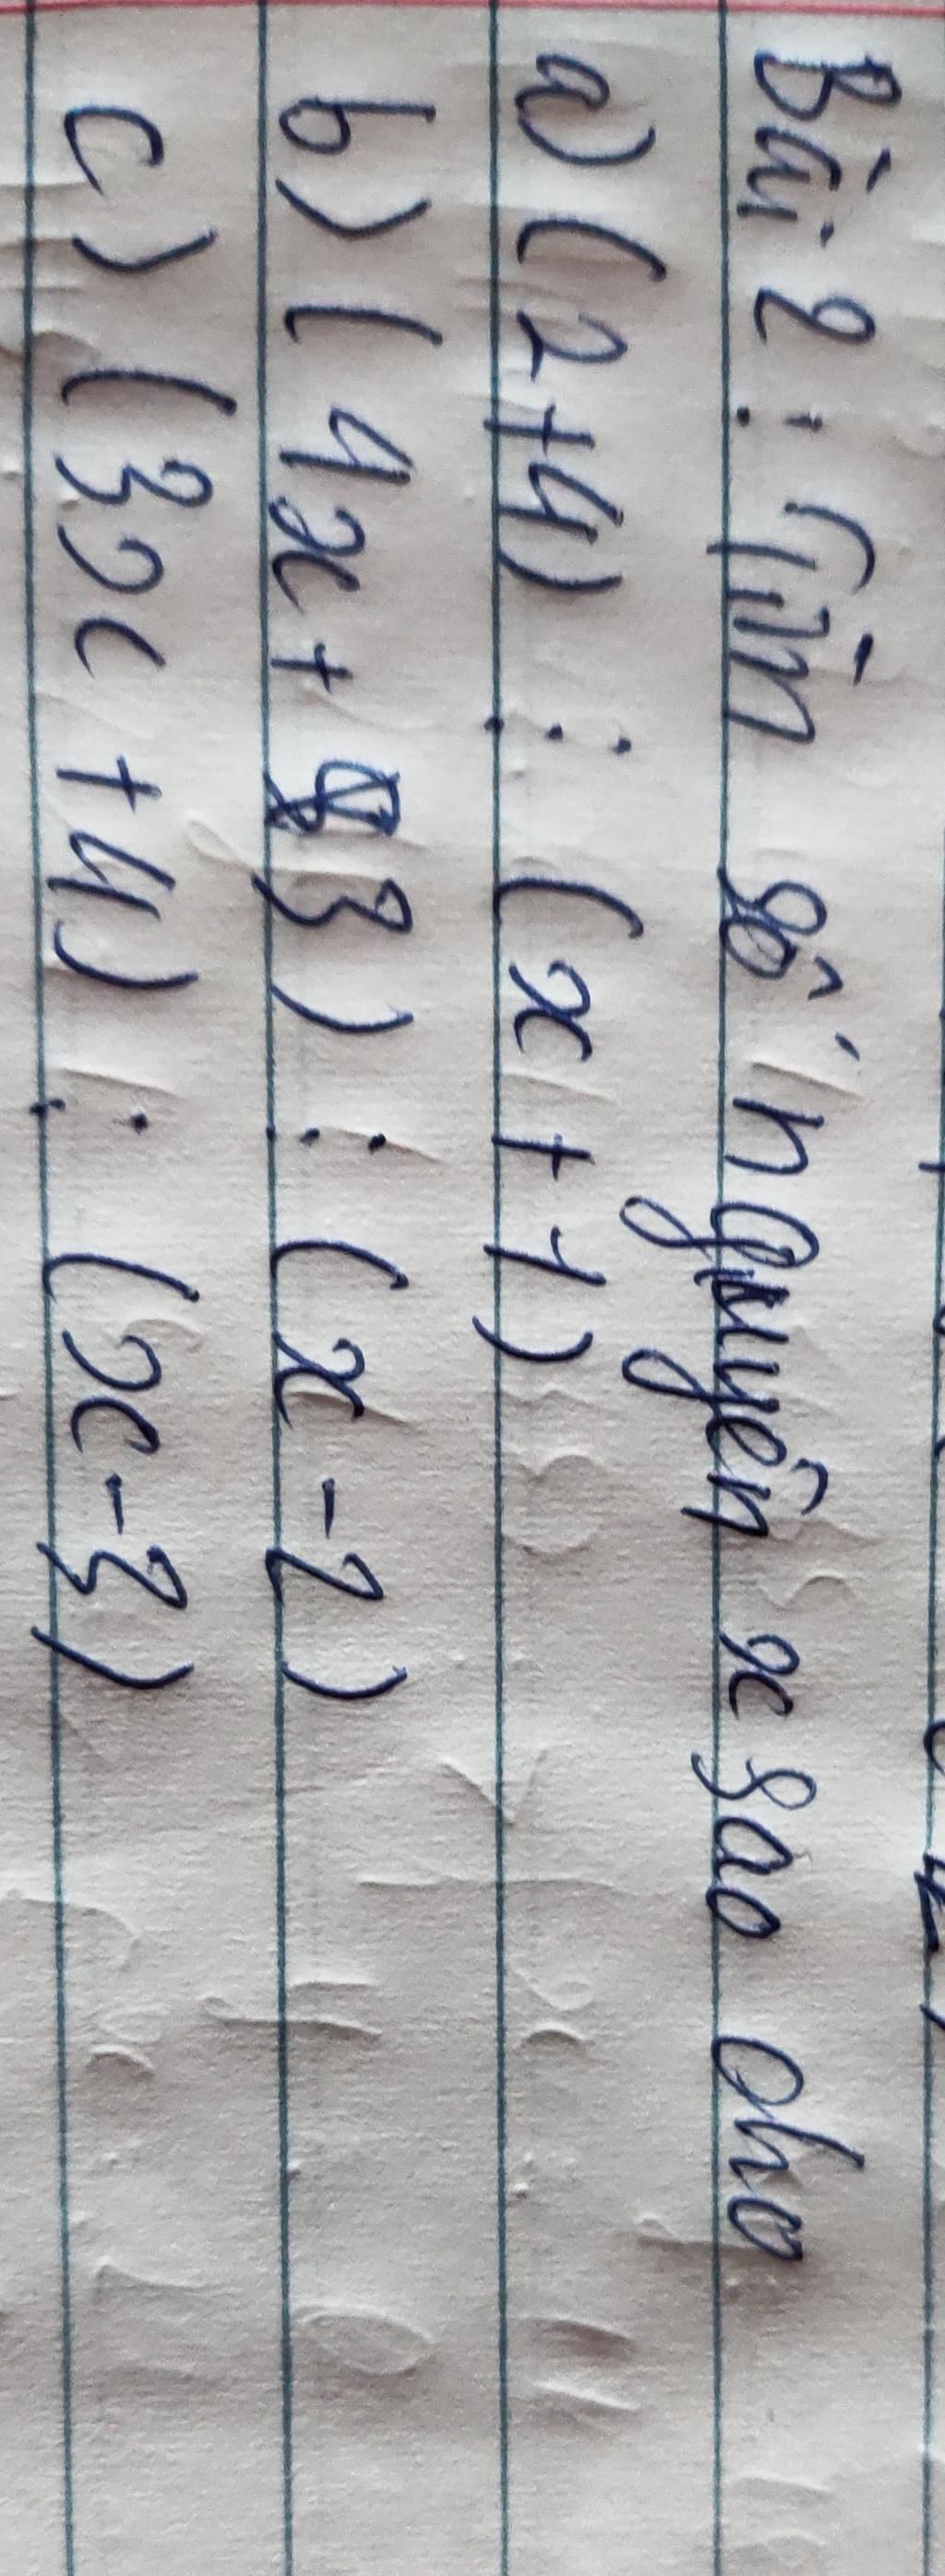 Bài 2 : Tìm số nguyên x sao cho
a) (2+4) ⋮ (x + 1)
b) ( 4x + 3 ) ⋮ (x - 2)
c) (3x +4) ⋮ (x - 3)